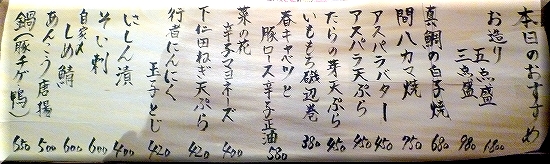 本日のおすすめ
お造り
五点盛 1800
三点盛 980
真鯛の白子焼 680
間八カマ焼 950
アスパラバター 450
アスパラ天ぷら 450
たらの芽天ぷら 450
いももち磯辺巻 380
春キャベツと
豚ロース辛子正油 580
菜の花
辛子マヨネーズ 400
下仁田ねぎ天ぷら 420
行者にんにく
玉子とじ 420
にしん漬 400
そい刺 600
自家製〆鯖 600
あんこう唐揚 500
鍋(豚チゲ、鴨) 550